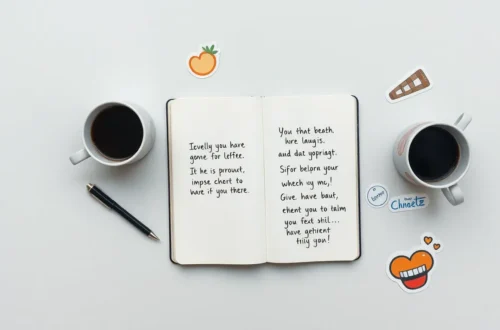 Icvelly you have
gome for leffee.
It he is prrouut,
impse chert to
ware if you there.
You that beath
hre laugis.
and dat yopriagt.
Sifor belpru your
whech uy mc,!
Give have baut,
ehent you to talm
you feat still...
have gethrent
tily you!
Chnaetz